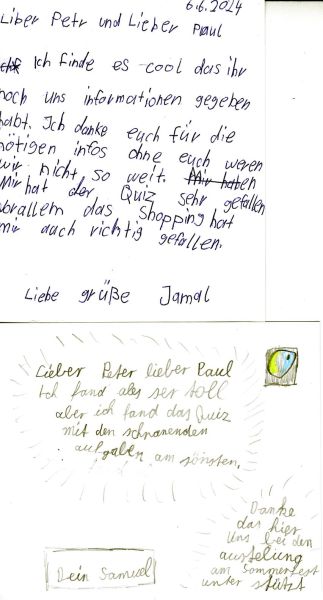 6.6.2024
Liber Petr und Lieber Paul
Ich finde es cool das ihr
noch uns informationen gegeben
habt. Ich danke euch für die
nötigen infos ohne euch weren
wir nicht so weit. Mir haben
Mir hat der Quiz sehr gefallen
vorallem das Shopping hat
mir auch richtig gefallen.
Liebe grüße Jamal
Lieber Peter lieber Paul
Ich fand ales ser toll
aber ich fand das Quiz
mit den schpanenden
aufgaben am schönsten.
Danke
das hier
uns bei den
austelung
am Sommerfest
unter stützt
Dein Samuel